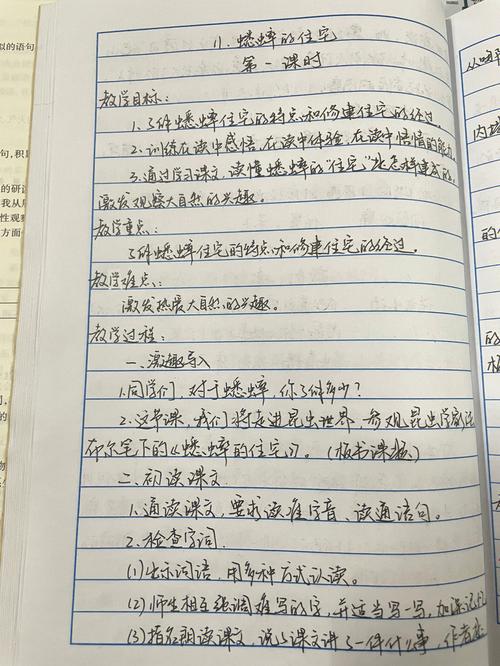 11. 蟋蟀的住宅
第一课时
教学目标:
1.了解蟋蟀住宅的特点和修建住宅的经过
2.训练在读中感悟,在读中体验,在读中悟情的能力。
3.通过学习课文,读懂蟋蟀的"住宅"是怎样建成的,
激发观察大自然的兴趣。
教学重点:
了解蟋蟀住宅的特点和修建住宅的经过。
教学难点:
激发热爱大自然的兴趣。
教学过程:
一、激趣导入
1.同学们,对于蟋蟀,你了解多少?
2.这节课,我们将走进昆虫世界,参观昆虫学家法
布尔笔下的《蟋蟀的住宅》。(板书课题)
二、初读课文
1.通读课文,要求读准字音、读通语句。
2.检查字词.
(1)出示词语,用多种方式认读。
(2)师生相互强调难写的字,并适当写一写,加深记忆
(3)指名朗读课文,说说课文讲了一件什么事,作者
似的语句
句,积
的研
我从
性观察
方面
物
从哪
内
的
的